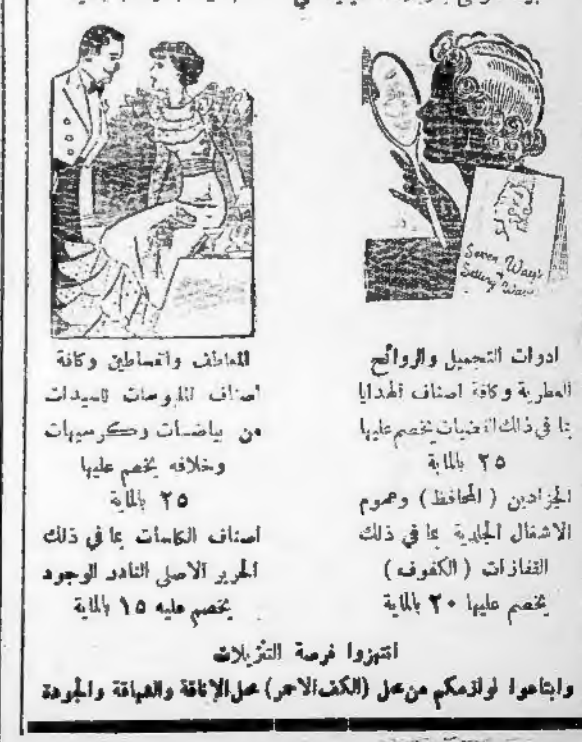 Seven Ways
Setting Waves
ادوات التجميل والروائح
العطرية وكافة اصناف الهدايا
بما في ذلك الفضيات يخصم عليها
٢٥ بالماية
الجزادين ( المحافظ ) وعموم
الاشغال الجلدية بما في ذلك
القفازات ( الكفوف )
يخصم عليها ٢٠ بالماية
المعاطف والفساطين وكافة
اصناف الملبوسات للسيدات
من بياضات وكرسيهات
وخلافه يخصم عليها
٢٥ بالماية
اصناف الكلسات بما في ذلك
الحرير الاصلي النادر الوجود
يخصم عليه ١٥ بالماية
انتهزوا فرصة التنزيلات
وابتاعوا لوازمكم من محل (الكف الاحمر) محل الاناقة والقيافة والجودة